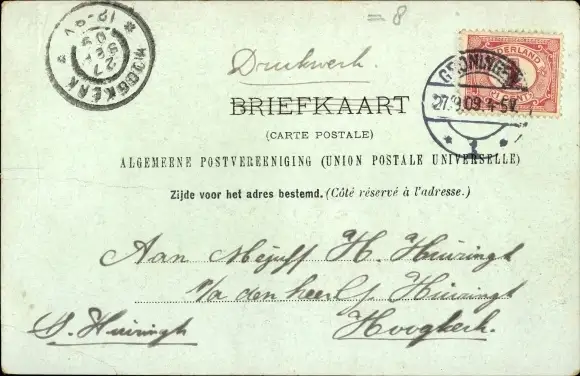 = 8
HOOGKERK
27 SEP 09
12-
NEDERLAND
GRONINGEN
27.9.09 4-5V
1
Drukwerk.
BRIEFKAART
(CARTE POSTALE)
ALGEMEENE POSTVEREENIGING (UNION POSTALE UNIVERSELLE)
Zijde voor het adres bestemd. (Côté réservé à l'adresse.)
Aan Mejuff H. Huizingh
p/a den heer J. Huizingh
Hoogkerk.
J. Huizingh